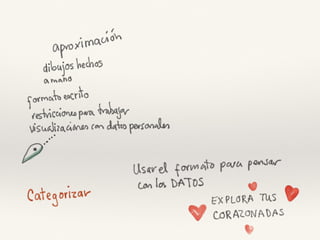 aproximación
dibujos hechos
a mano
formato escrito
restricciones para trabajar
visualizaciones con datos personales
Usar el formato para pensar
con los DATOS
Categorizar
EXPLORA TUS
CORAZONADAS